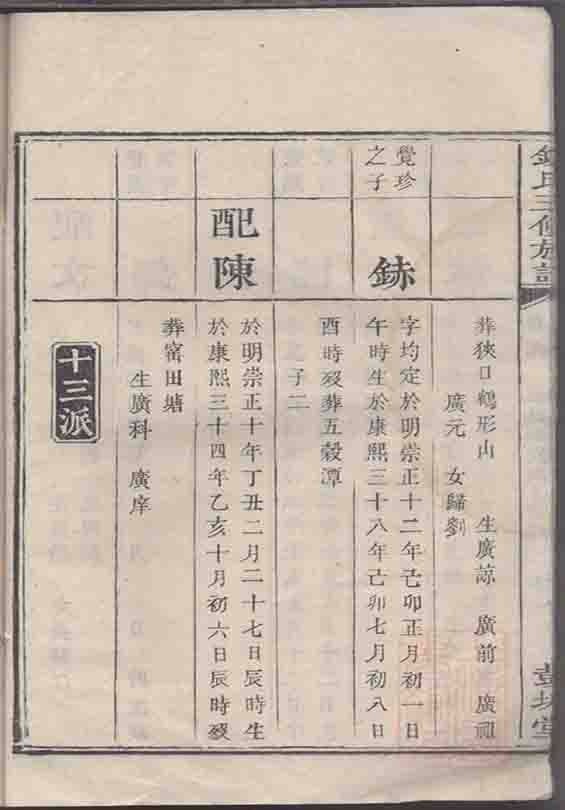 氏三修族譜
葬狹口鶴形山　生廣諒　廣前　廣祖
廣元　女歸劉
覺珍
之子
鉢
字均定於明崇正十二年己卯正月初一日
午時生於康熙三十八年己卯七月初八日
酉時歿葬五穀潭
子二
配陳
於明崇正十年丁丑二月二十七日辰時生
於康熙三十四年乙亥十月初六日辰時歿
葬窰田塘
生廣科　廣庠
十三派